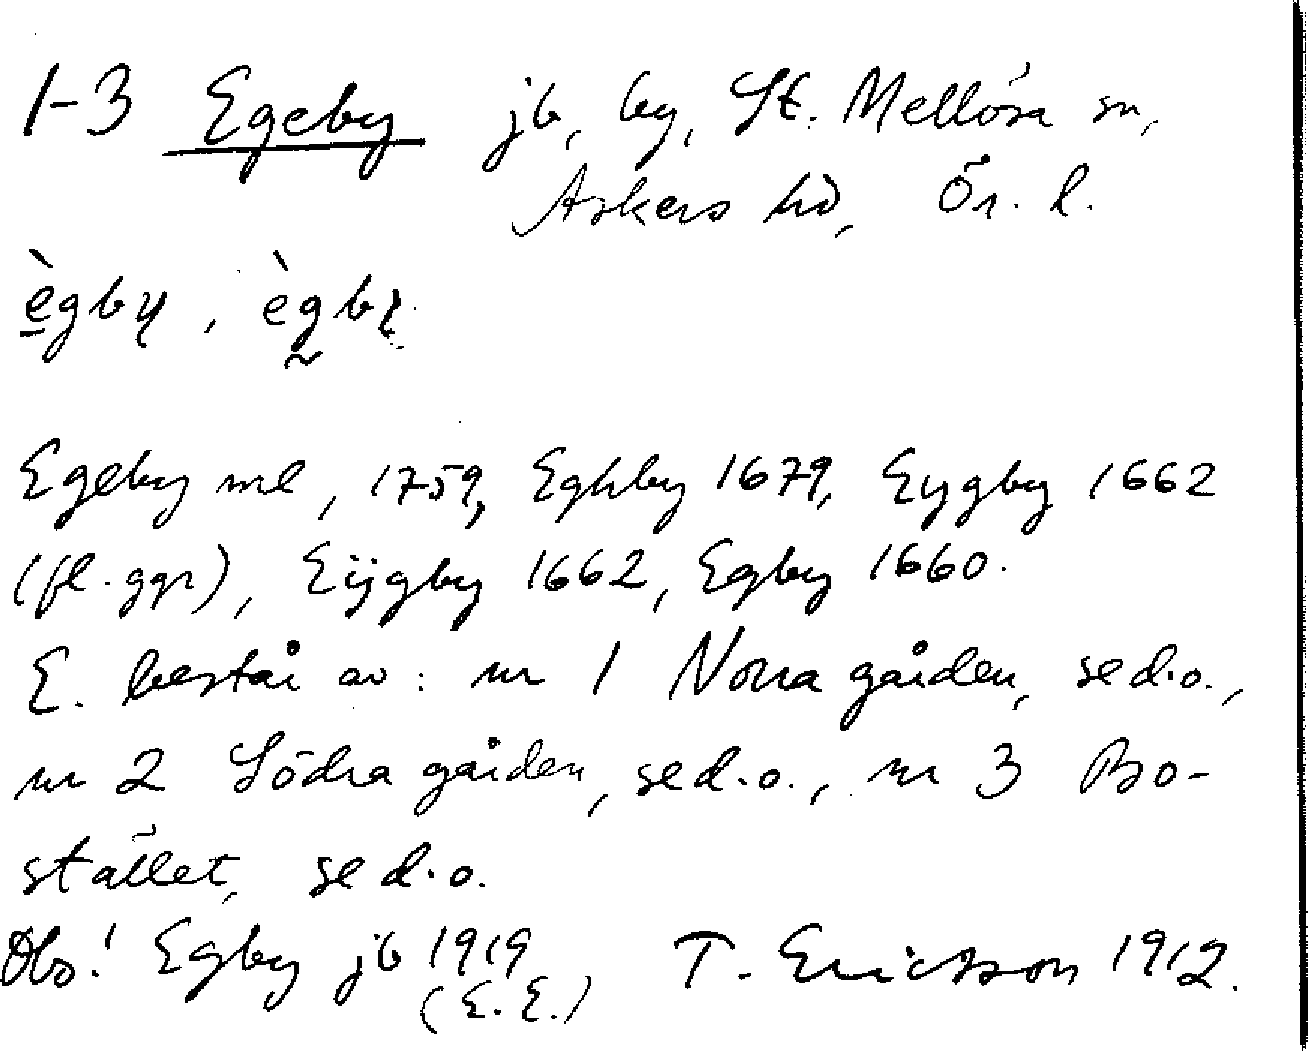 1-3 Egeby jb, by, St. Mellösa sn,
Askers hd, Ör. l.
ègby, ègby
Egeby ml, 1759, Eghby 1679, Eygby 1662
(fl. ggr), Eijgby 1662, Egby 1660.
E. består av: nr 1 Norra gården, se d.o.,
nr 2 Södra gården, se d.o., nr 3 Bo-
stället, se d.o.
Obs! Egby jb 1919
(E.E.)
T. Ericsson 1912.